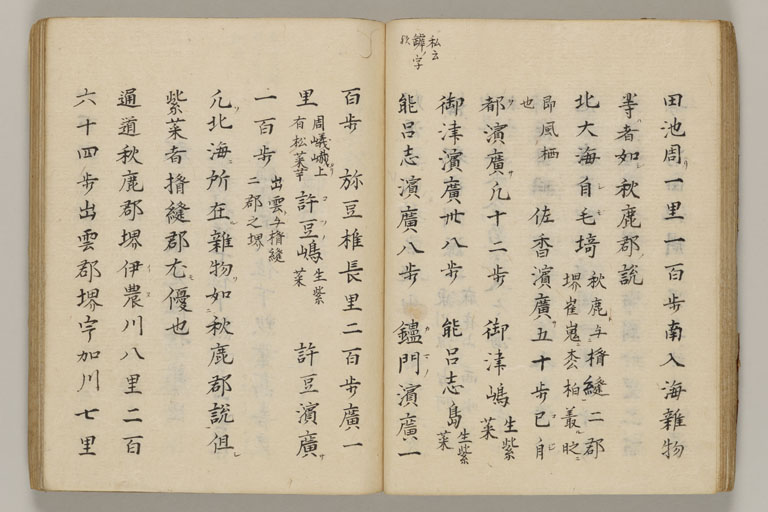 私云
ノ字
歟
田池周一里一百歩南入海雜物
等者如秋鹿郡説
北大海自毛埼 秋鹿与楯縫二郡
堺崔嵬枩栢
即風栖
也 佐香濱廣五十歩已自
都濱廣九十二歩 御津嶋 生紫
菜
御津濱廣卅八歩 能呂志島 生紫
菜
能呂志濱廣八歩 門濱廣一
百歩 弥豆椎長里二百歩廣一
里 周嵯峨上
有松菜芋 許豆嶋 生紫
菜 許豆濱廣
一百歩 出雲与楯縫
二郡之堺
凡北海所在雜物如秋鹿郡説但
紫菜者楯縫郡尤優也
通道秋鹿郡堺伊農川八里二百
六十四歩出雲郡堺宇加川七里